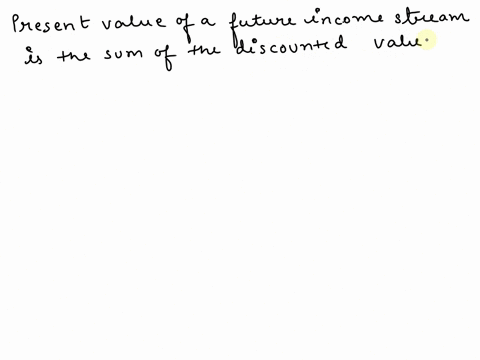 Present value of a future income stream
is the sum of the discounted value